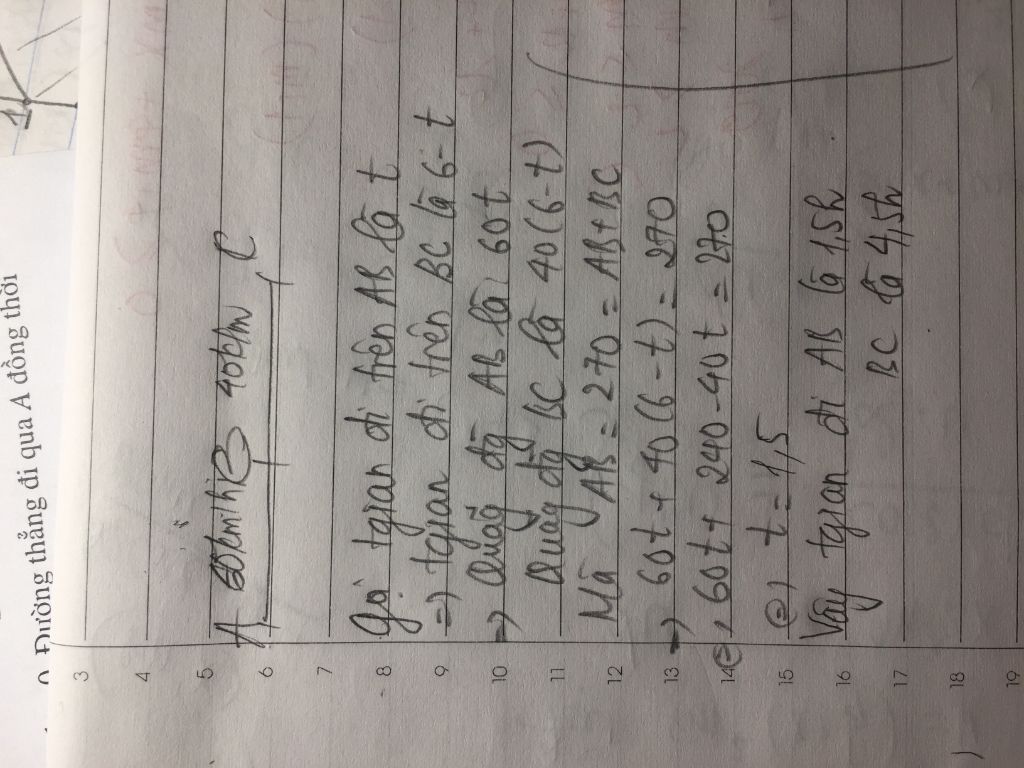 Đường thẳng đi qua A đồng thời
3
4
5 60km/h B 40km C
6 A
7
8 Gọi tgian đi trên AB là t
9 => tgian đi trên BC là 6-t
10 => Quãg đg AB là 60t
11 Quãg đg BC là 40(6-t)
12 Mà AB = 270 = AB+BC
13 => 60t + 40(6-t) = 270
14 (=) 60t + 240-40t = 270
15 (=) t = 1,5
16 Vậy tgian đi AB là 1,5h
17 BC là 4,5h
18
19